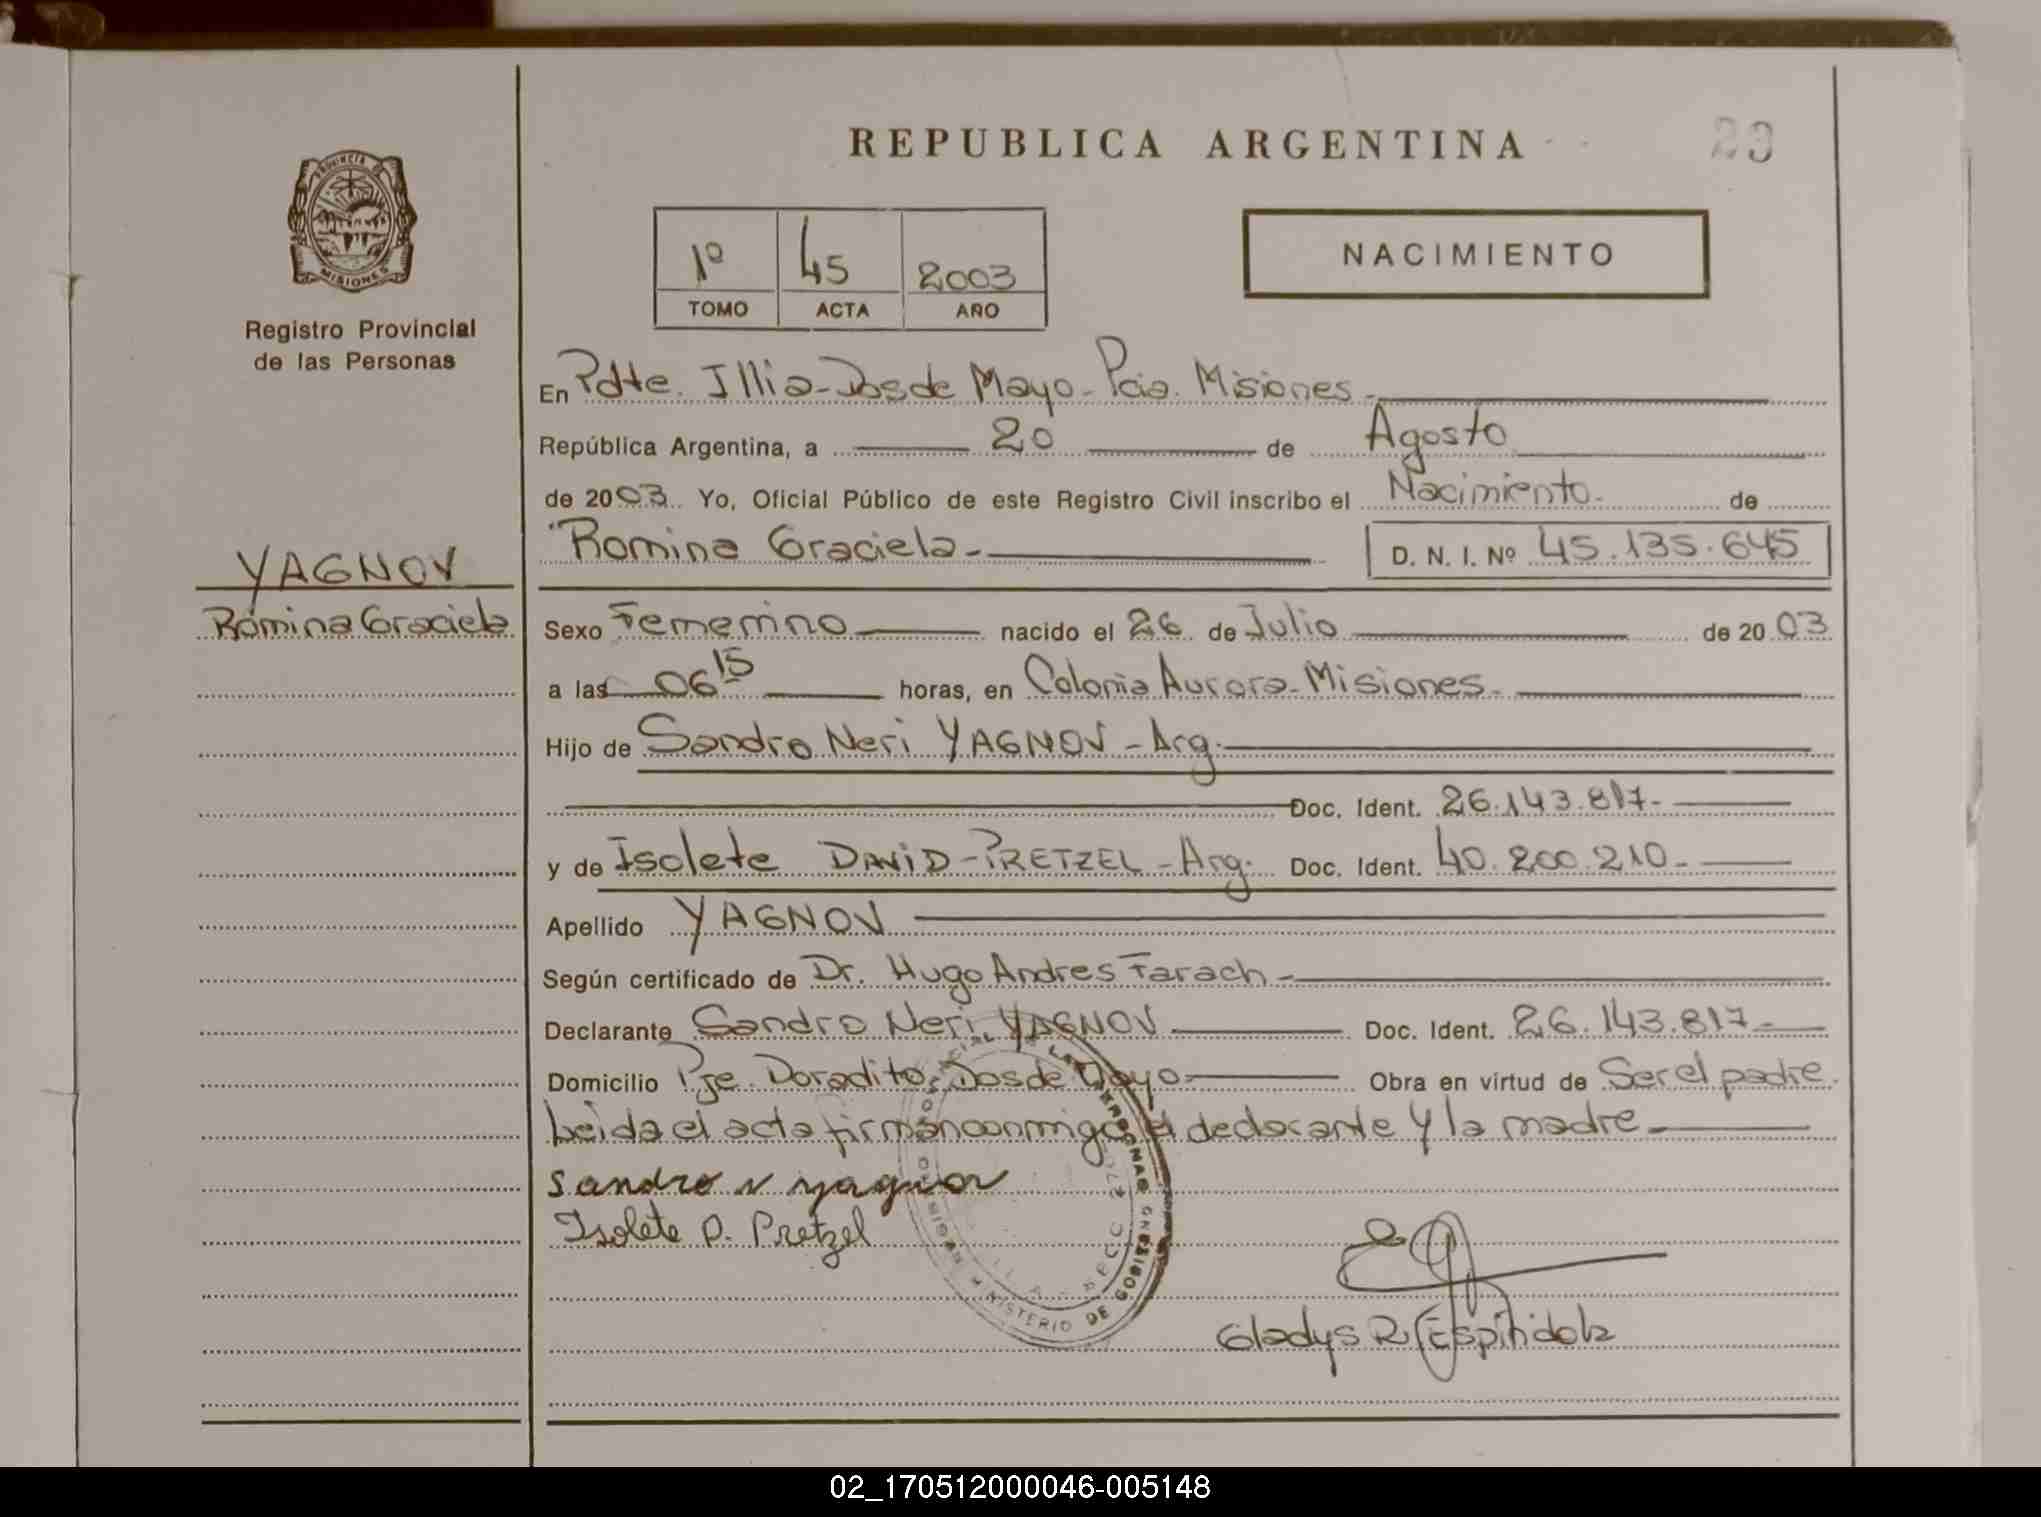 REPUBLICA ARGENTINA
23
PROVINCIA DE
MISIONES
Registro Provincial
de las Personas
1º 45 2003
TOMO ACTA AÑO
NACIMIENTO
En Pdte. Illia-Dos de Mayo-Pcia. Misiones-
República Argentina, a 20 de Agosto
de 2003 Yo, Oficial Público de este Registro Civil inscribo el Nacimiento- de
Romina Graciela- D. N. I. Nº 45.135.645
YAGNOV
Romina Graciela
Sexo Femenino nacido el 26 de Julio de 2003
a las 06 15 horas, en Colonia Aurora-Misiones-
Hijo de Sandro Neri YAGNOV-Arg.
Doc. Ident. 26.143.817-
y de Isolete DAVID-PRETZEL-Arg. Doc. Ident. 40.200.210-
Apellido YAGNOV
Según certificado de Dr. Hugo Andres Farach-
Declarante Sandro Neri YAGNOV Doc. Ident. 26.143.817-
Domicilio Pje. Doradito-Dos de Mayo- Obra en virtud de Ser el padre.
Leida el acta firman conmigo el declarante y la madre-
sandro n yagnov
Isolete D. Pretzel
MINISTERIO DE GOBIERNO
Gladys R. Espindola
02_170512000046-005148